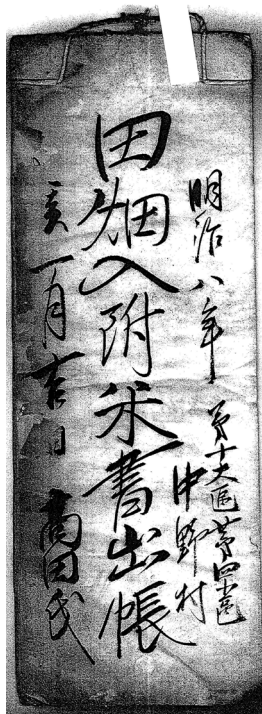 明治八年
第十大區第四小區
中野村
田畑入附米書出帳
亥一月吉日 高田氏